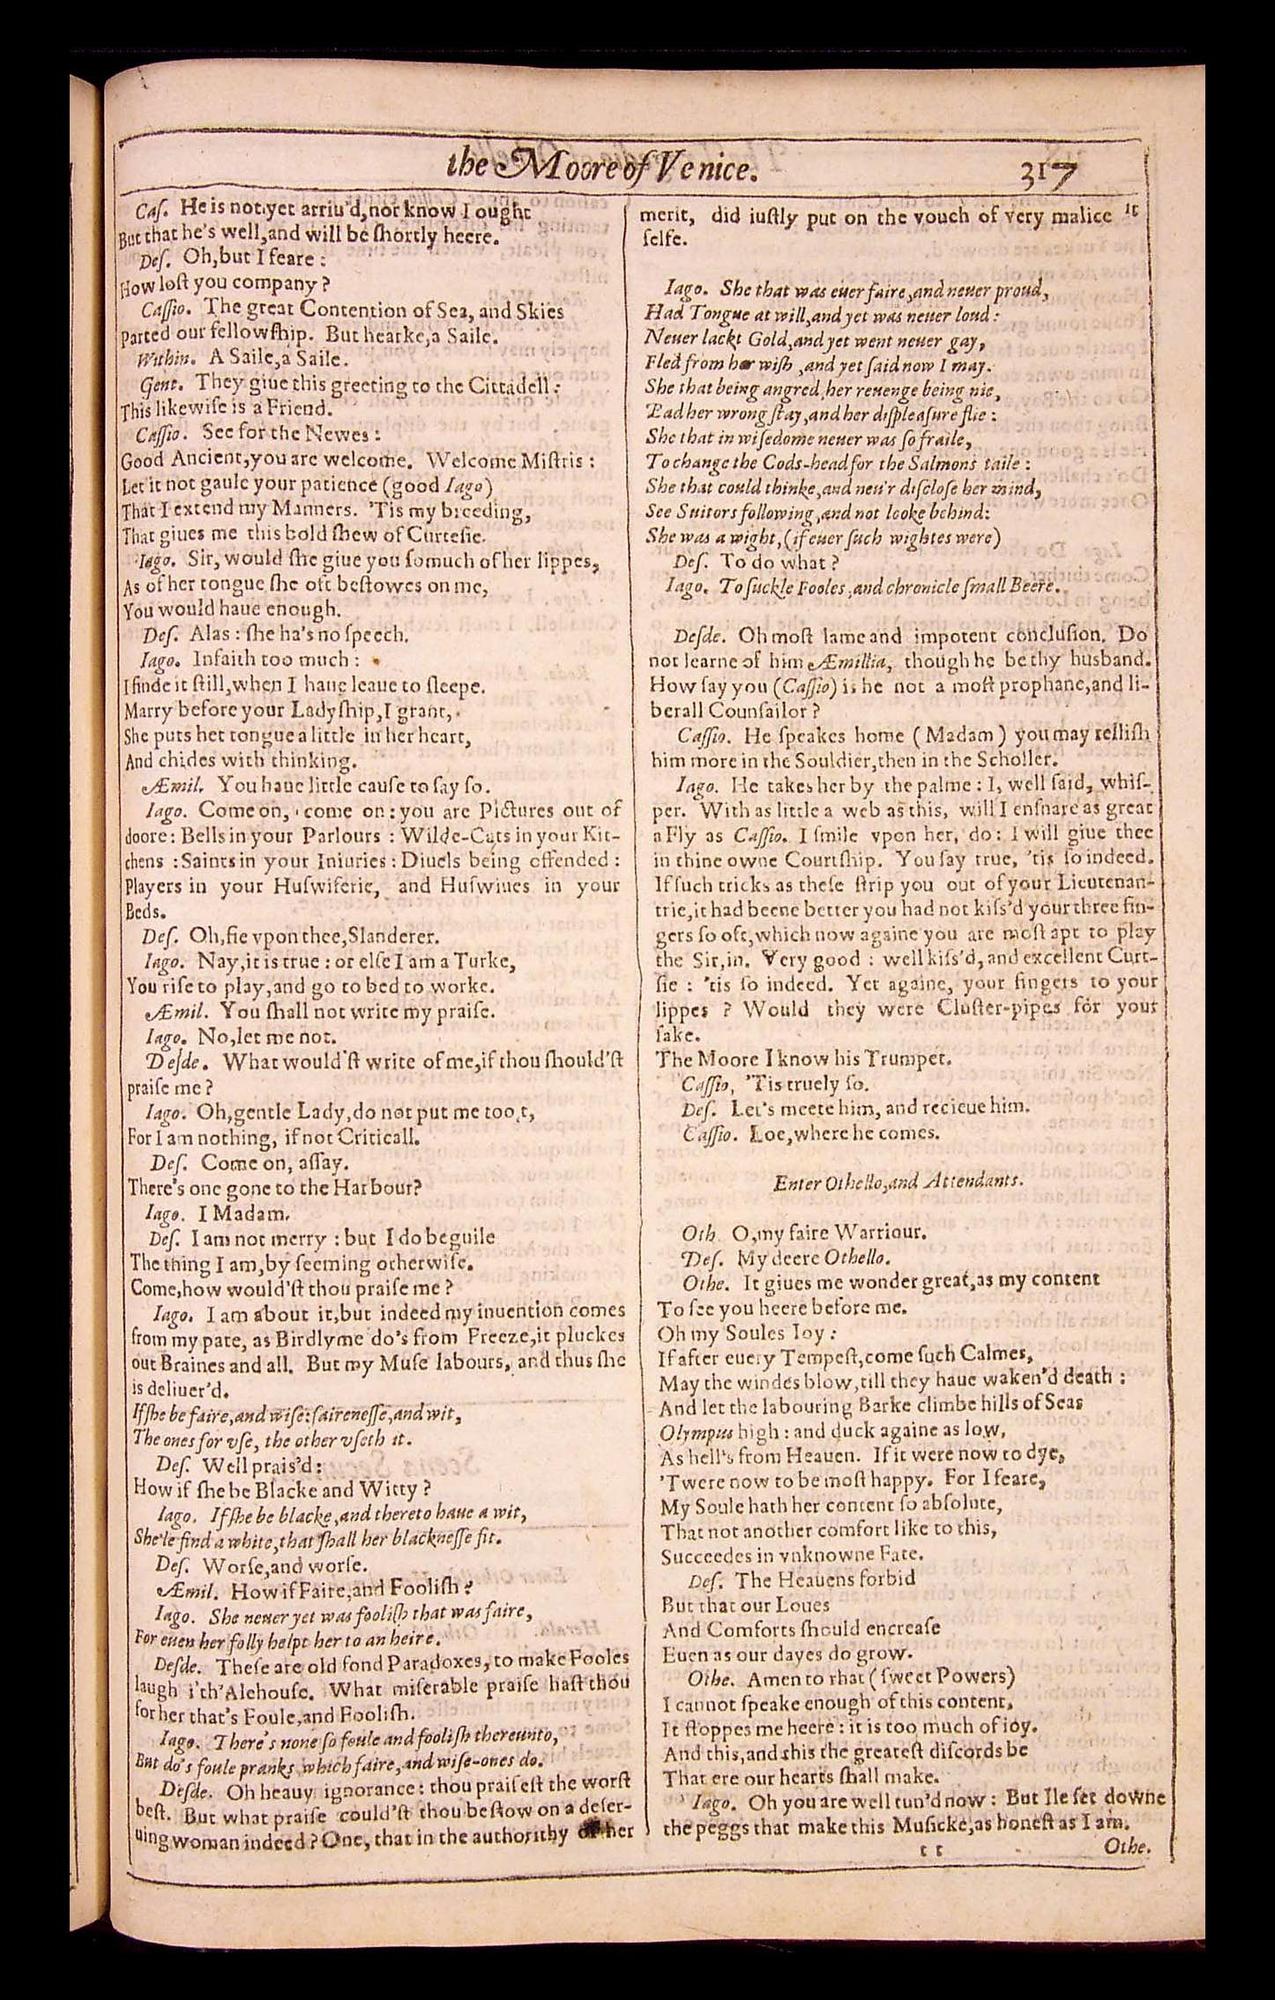 the Moore of Venice. 317
Cas. He is not yet arriu'd, nor know I ought
But that he's well, and will be shortly heere.
Des. Oh, but I feare:
How lost you company?
Cassio. The great Contention of Sea, and Skies
Parted our fellowship. But hearke, a Saile.
Within. A Saile, a Saile.
Gent. They giue this greeting to the Cittadell:
This likewise is a Friend.
Cassio. See for the Newes:
Good Ancient, you are welcome. Welcome Mistris:
Let it not gaule your patience (good Iago)
That I extend my Manners. 'Tis my breeding,
That giues me this bold shew of Curtesie.
Iago. Sir, would she giue you so much of her lippes,
As of her tongue she oft bestowes on me,
You would haue enough.
Des. Alas: she ha's no speech.
Iago. Infaith too much:
I finde it still, when I haue leaue to sleepe.
Marry before your Ladyship, I grant,
She puts her tongue a little in her heart,
And chides with thinking.
Æmil. You haue little cause to say so.
Iago. Come on, come on: you are Pictures out of
doore: Bells in your Parlours: Wilde-Cats in your Kit-
chens: Saints in your Iniuries: Diuels being offended:
Players in your Huswiferie, and Huswiues in your
Beds.
Des. Oh, fie vpon thee, Slanderer.
Iago. Nay, it is true: or else I am a Turke,
You rise to play, and go to bed to worke.
Æmil. You shall not write my praise.
Iago. No, let me not.
Desde. What would'st write of me, if thou should'st
praise me?
Iago. Oh, gentle Lady, do not put me too't,
For I am nothing, if not Criticall.
Des. Come on, assay.
There's one gone to the Harbour?
Iago. I Madam.
Des. I am not merry: but I do beguile
The thing I am, by seeming otherwise.
Come, how would'st thou praise me?
Iago. I am about it, but indeed my inuention comes
from my pate, as Birdlyme do's from Freeze, it pluckes
out Braines and all. But my Muse labours, and thus she
is deliuer'd.
If she be faire, and wise: fairenesse, and wit,
The ones for vse, the other vseth it.
Des. Well prais'd:
How if she be Blacke and Witty?
Iago. If she be blacke, and thereto haue a wit,
She'le find a white, that shall her blacknesse fit.
Des. Worse, and worse.
Æmil. How if Faire, and Foolish?
Iago. She neuer yet was foolish that was faire,
For euen her folly helpt her to an heire.
Desde. These are old fond Paradoxes, to make Fooles
laugh i'th'Alehouse. What miserable praise hast thou
for her that's Foule, and Foolish.
Iago. There's none so foule and foolish thereunto,
But do's foule pranks, which faire, and wise-ones do.
Desde. Oh heauy ignorance: thou praisest the worst
best. But what praise could'st thou bestow on a deser-
uing woman indeed? One, that in the authorithy of her
merit, did iustly put on the vouch of very malice it
selfe.
Iago. She that was euer faire, and neuer proud,
Had Tongue at will, and yet was neuer loud:
Neuer lackt Gold, and yet went neuer gay,
Fled from her wish, and yet said now I may.
She that being angred, her reuenge being nie,
Bad her wrong stay, and her displeasure flie:
She that in wisedome neuer was so fraile,
To change the Cods-head for the Salmons taile:
She that could thinke, and neu'r disclose her mind,
See Suitors following, and not looke behind:
She was a wight, (if euer such wightes were)
Des. To do what?
Iago. To suckle Fooles, and chronicle small Beere.
Desde. Oh most lame and impotent conclusion. Do
not learne of him Æmillia, though he be thy husband.
How say you (Cassio) is he not a most prophane, and li-
berall Counsailor?
Cassio. He speakes home (Madam) you may rellish
him more in the Souldier, then in the Scholler.
Iago. He takes her by the palme: I, well said, whis-
per. With as little a web as this, will I ensnare as great
a Fly as Cassio. I smile vpon her, do: I will giue thee
in thine owne Courtship. You say true, 'tis so indeed.
If such tricks as these strip you out of your Lieutenan-
trie, it had beene better you had not kiss'd your three fin-
gers so oft, which now againe you are most apt to play
the Sir, in. Very good: well kiss'd, and excellent Curt-
sie: 'tis so indeed. Yet againe, your fingers to your
lippes? Would they were Cluster-pipes for your
sake.
The Moore I know his Trumpet.
Cassio, 'Tis truely so.
Des. Let's meete him, and recieue him.
Cassio. Loe, where he comes.
Enter Othello, and Attendants.
Oth. O, my faire Warriour.
Des. My deere Othello.
Othe. It giues me wonder great, as my content
To see you heere before me.
Oh my Soules Ioy:
If after euery Tempest, come such Calmes,
May the windes blow, till they haue waken'd death:
And let the labouring Barke climbe hills of Seas
Olympus high: and duck againe as low,
As hell's from Heauen. If it were now to dye,
'Twere now to be most happy. For I feare,
My Soule hath her content so absolute,
That not another comfort like to this,
Succeedes in vnknowne Fate.
Des. The Heauens forbid
But that our Loues
And Comforts should encrease
Euen as our dayes do grow.
Othe. Amen to that (sweet Powers)
I cannot speake enough of this content,
It stoppes me heere: it is too much of ioy.
And this, and this the greatest discords be
That ere our hearts shall make.
Iago. Oh you are well tun'd now: But Ile set downe
the peggs that make this Musicke, as honest as I am.
t t Othe.